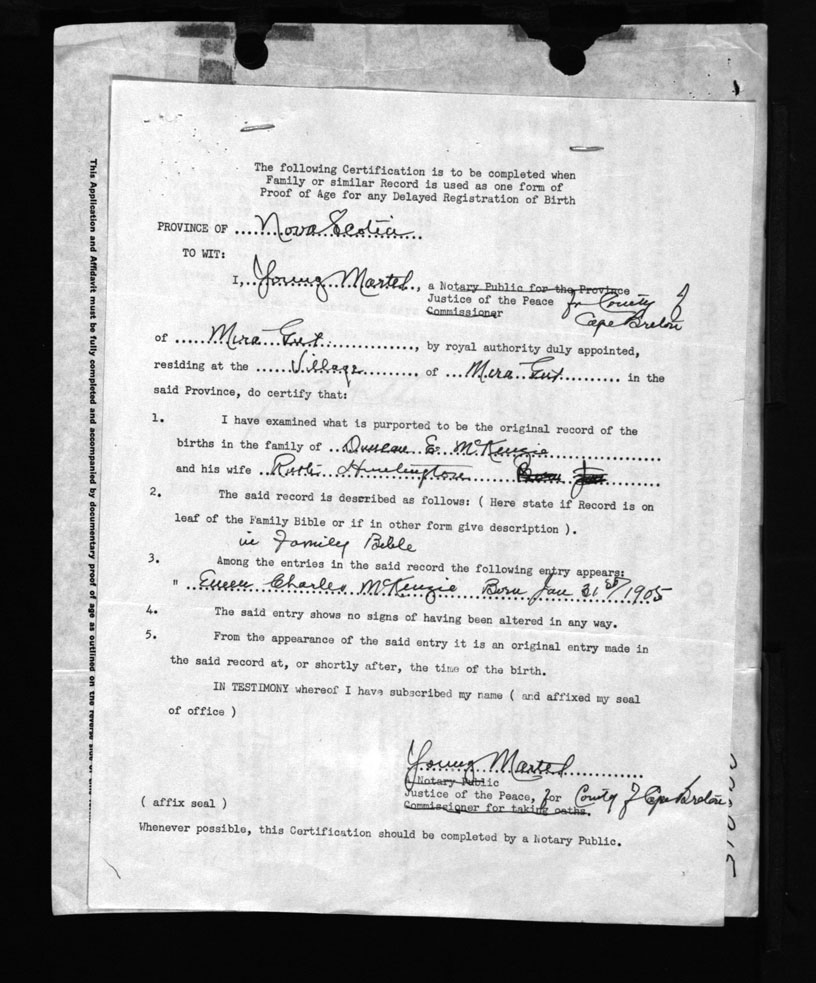 The following Certification is to be completed when
Family or similar Record is used as one form of
Proof of Age for any Delayed Registration of Birth
PROVINCE OF ....Nova Scotia....
TO WIT:
I,..Young Martel., a Notary Public for the Province
Justice of the Peace for County of
Commissioner Cape Breton
of .....Mira Gut.............., by royal authority duly appointed,
residing at the ......Village......... of ...Mira Gut.......... in the
said Province, do certify that:
1. I have examined what is purported to be the original record of the
births in the family of ..Duncan E. McKenzie.................
and his wife ..Huntington.... Born Jan........
2. The said record is described as follows: ( Here state if Record is on
leaf of the Family Bible or if in other form give description ).
in Family Bible
3. Among the entries in the said record the following entry appears:
" ..Charles McKenzie Born Jan 31st/1905
4. The said entry shows no signs of having been altered in any way.
5. From the appearance of the said entry it is an original entry made in
the said record at, or shortly after, the time of the birth.
IN TESTIMONY whereof I have subscribed my name ( and affixed my seal
of office )
Young Martel
A Notary Public
Justice of the Peace, for County of Cape Breton
Commissioner for taking oaths.
( affix seal )
Whenever possible, this Certification should be completed by a Notary Public.
This Application and Affidavit must be fully completed and accompanied by documentary proof of age as outlined on the reverse side of